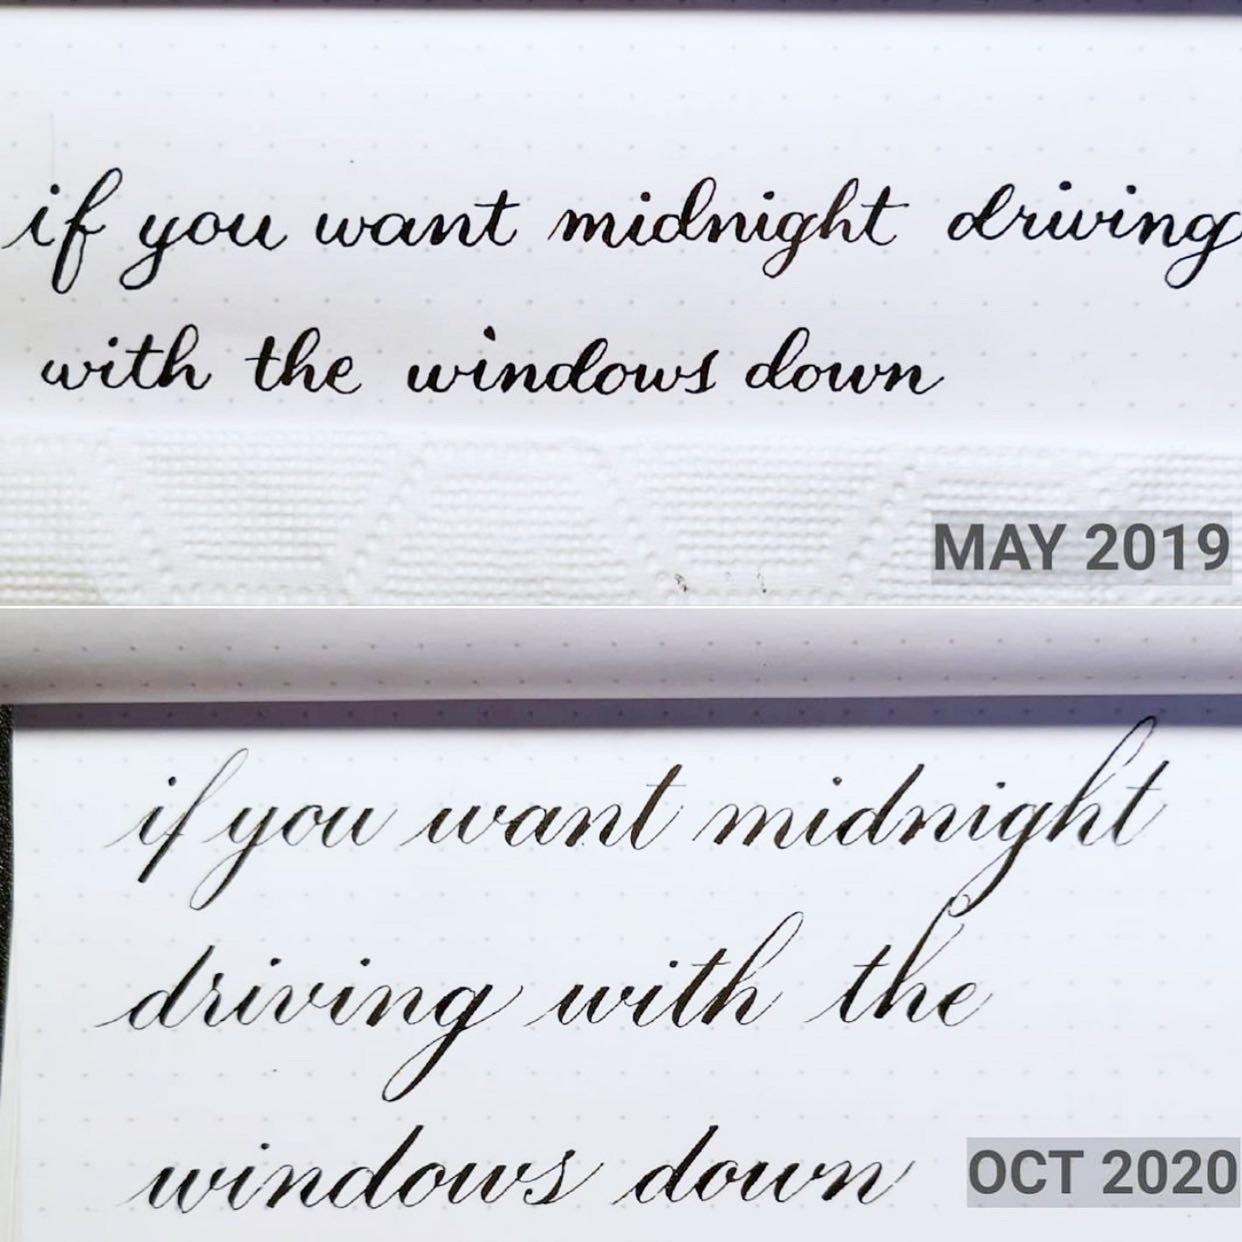 if you want midnight driving
with the windows down
MAY 2019
if you want midnight
driving with the
windows down
OCT 2020